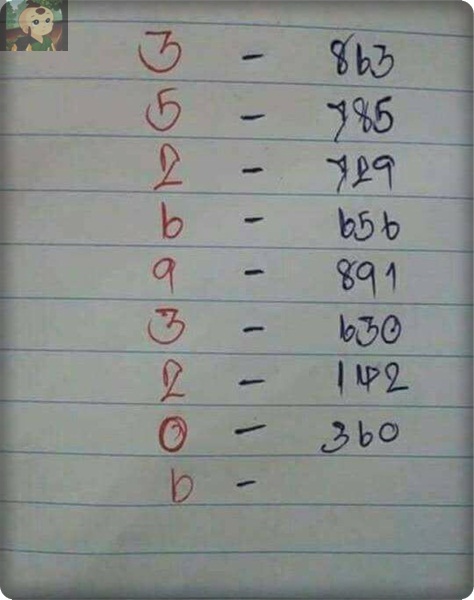 3 - 863
5 - 785
2 - 729
6 - 656
9 - 891
3 - 630
2 - 142
0 - 360
6 -